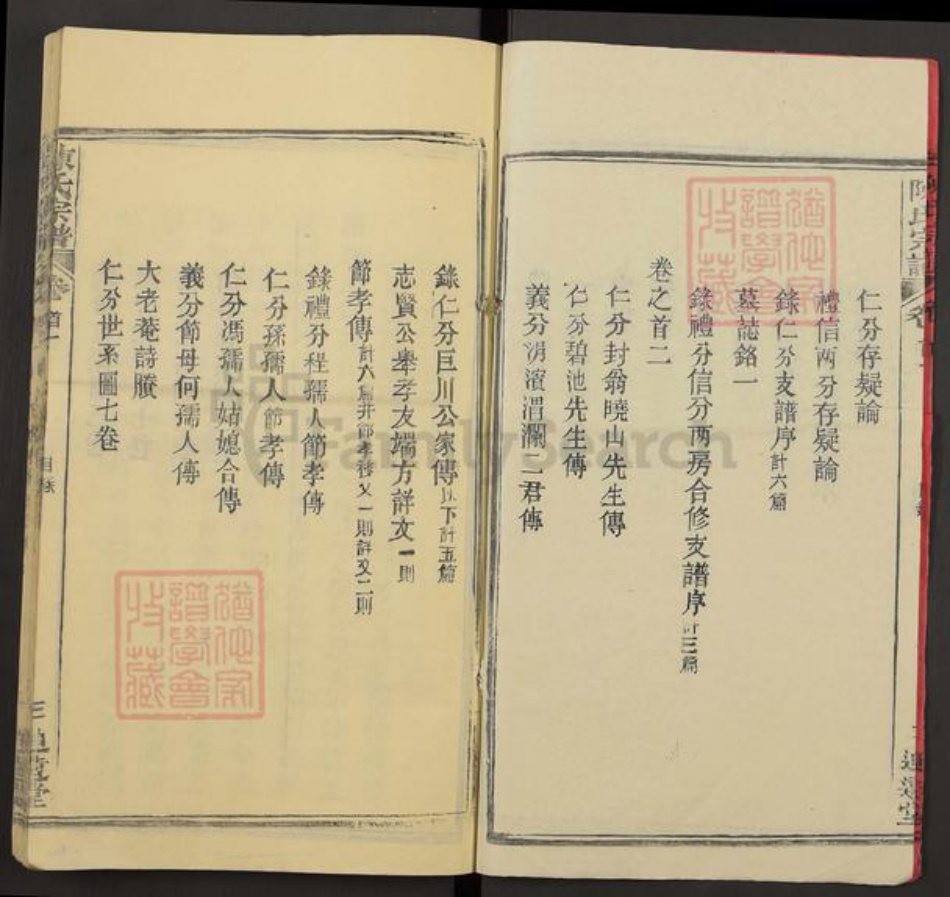 仁分存疑論
禮信兩分存疑論
錄仁分支譜序計六篇
墓誌銘一
錄禮分信分兩房合修支譜序計三篇
卷之首二
仁分封翁曉山先生傳
仁分碧池先生傳
義分湧濱渭瀾二君傳
錄仁分巨川公家傳以下計五篇
志賢公舉孝友端方詳文一則
節孝傳計六篇并節孝移文一則詳文二則
錄禮分程孺人節孝傳
仁分孫孺人節孝傳
仁分馮孺人姑媳合傳
義分節母何孺人傳
大老菴詩賸
仁分世系圖七卷
陳氏宗譜
卷首一
目錄
三
陳氏宗譜
FamilySearch